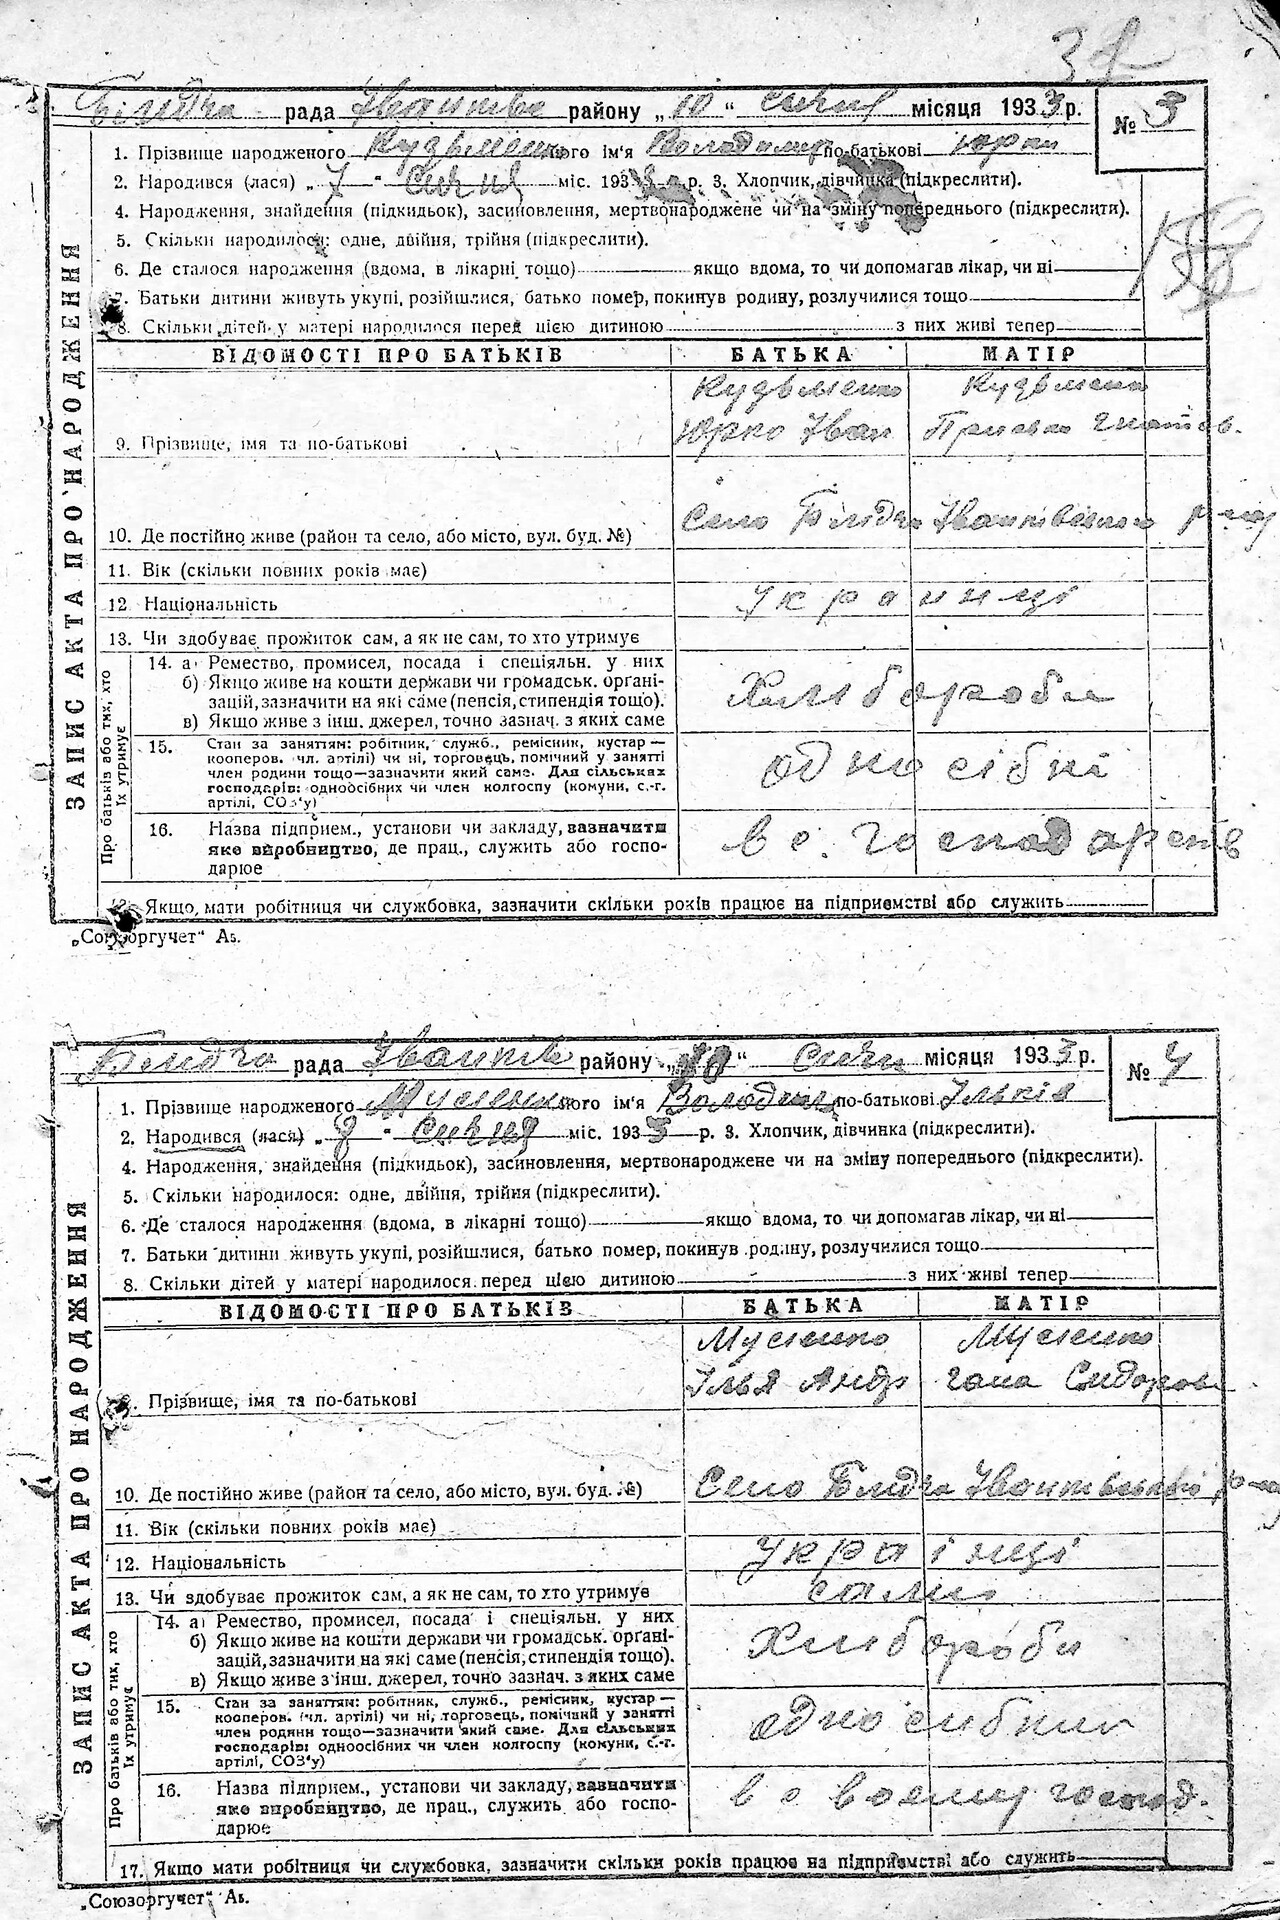 31
рада Іванків району „10“ січня місяця 1933 р.
№ 3
1. Прізвище народженого Кудьменко його ім'я Володимир по-батькові Юрай
2. Народився (лася) „7“ Січня міс. 1933 р. 3. Хлопчик, дівчинка (підкреслити).
4. Народження, знайдення (підкидьок), засиновлення, мертвонароджене чи на зміну попереднього (підкреслити).
5. Скільки народилося: одне, двійня, трійня (підкреслити).
6. Де сталося народження (вдома, в лікарні тощо) якщо вдома, то чи допомагав лікар, чи ні
7. Батьки дитини живуть укупі, розійшлися, батько помер, покинув родину, розлучилися тощо
8. Скільки дітей у матері народилося перед цією дитиною з них живі тепер
ЗАПИС АКТА ПРО НАРОДЖЕННЯ
ВІДОМОСТІ ПРО БАТЬКІВ БАТЬКА МАТІР
Кудьменко Кудьменко
9. Прізвище, імя та по-батькові Юрко Іван
10. Де постійно живе (район та село, або місто, вул. буд. №) Село
11. Вік (скільки повних років має)
12 Національність Українці
13. Чи здобуває прожиток сам, а як не сам, то хто утримує
Про батьків або тих, хто їх утримує
14. а) Ремество, промисел, посада і спеціяльн. у них
б) Якщо живе на кошти держави чи громадськ. органі-
зацій, зазначити на які саме (пенсія, стипендія тощо). Хлібороби
в) Якщо живе з інш. джерел, точно зазнач. з яких саме
15. Стан за заняттям: робітник, служб., ремісник, кустар —
кооперов. чл. артілі) чи ні, торговець, помічний у занятті
член родини тощо—зазначити який саме. Для сільських
господарів: одноосібних чи член колгоспу (комуни, с.-г.
артілі, СОЗ'у)
одно сібні
16. Назва підприєм., установи чи закладу, зазначити
яке виробництво, де прац., служить або госпо-
дарює
в с. господарств
Якщо мати робітниця чи службовка, зазначити скільки років працює на підприємстві або служить
„Союзоргучет“ Аь.
рада Іванків району „10“ Січн місяця 1933 р.
№ 4
1. Прізвище народженого Мусіенко його ім'я Володим по-батькові Ількія
2. Народився (лася) „8“ Січня міс. 1933 р. 3. Хлопчик, дівчинка (підкреслити).
4. Народження, знайдення (підкидьок), засиновлення, мертвонароджене чи на зміну попереднього (підкреслити).
5. Скільки народилося: одне, двійня, трійня (підкреслити).
6. Де сталося народження (вдома, в лікарні тощо) якщо вдома, то чи допомагав лікар, чи ні
7. Батьки дитини живуть укупі, розійшлися, батько помер, покинув родину, розлучилися тощо
8. Скільки дітей у матері народилося перед цією дитиною з них живі тепер
ЗАПИС АКТА ПРО НАРОДЖЕННЯ
ВІДОМОСТІ ПРО БАТЬКІВ БАТЬКА МАТІР
Мусіенко Мусіенко
Ілья Андр Гана Сидоров
9. Прізвище, імя та по-батькові
10. Де постійно живе (район та село, або місто, вул. буд. №) Село
11. Вік (скільки повних років має)
12. Національність Українці
13. Чи здобуває прожиток сам, а як не сам, то хто утримує сами
Про батьків або тих, хто їх утримує
14. а) Ремество, промисел, посада і спеціяльн. у них
б) Якщо живе на кошти держави чи громадськ. органі-
зацій, зазначити на які саме (пенсія, стипендія тощо). Хлібороби
в) Якщо живе з інш. джерел, точно зазнач. з яких саме
15. Стан за заняттям: робітник, служб., ремісник, кустар —
кооперов. (чл. артілі) чи ні, торговець, помічний у занятті
член родини тощо—зазначити який саме. Для сільських
господарів: одноосібних чи член колгоспу (комуни, с.-г.
артілі, СОЗ'у)
одно сибник
16. Назва підприєм., установи чи закладу, зазначити
яке виробництво, де прац., служить або госпо-
дарює
в своему господ.
17. Якщо мати робітниця чи службовка, зазначити скільки років працює на підприємстві або служить
„Союзоргучет“ Аь.